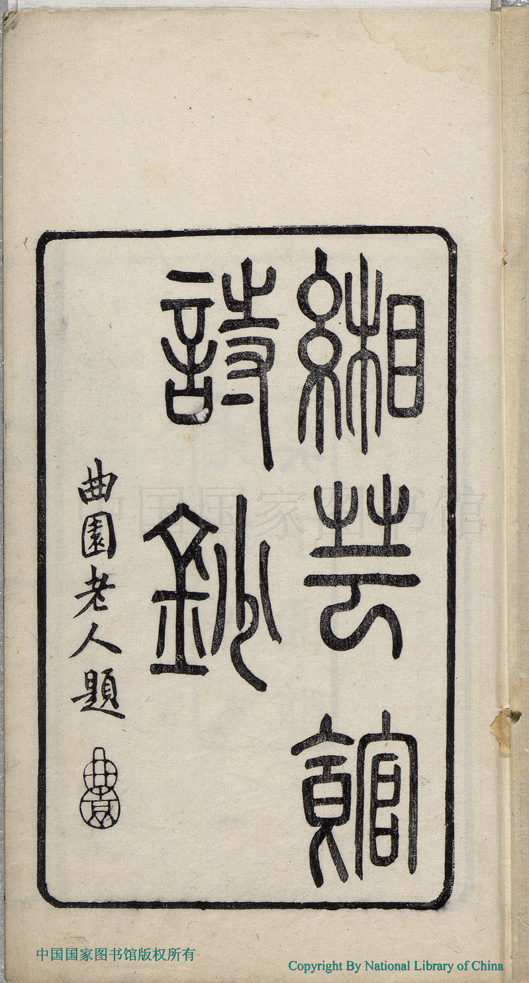 緗芸館
詩鈔
曲園老人題
曲園
中国国家图书馆
中国国家图书馆版权所有
Copyright By National Library of China